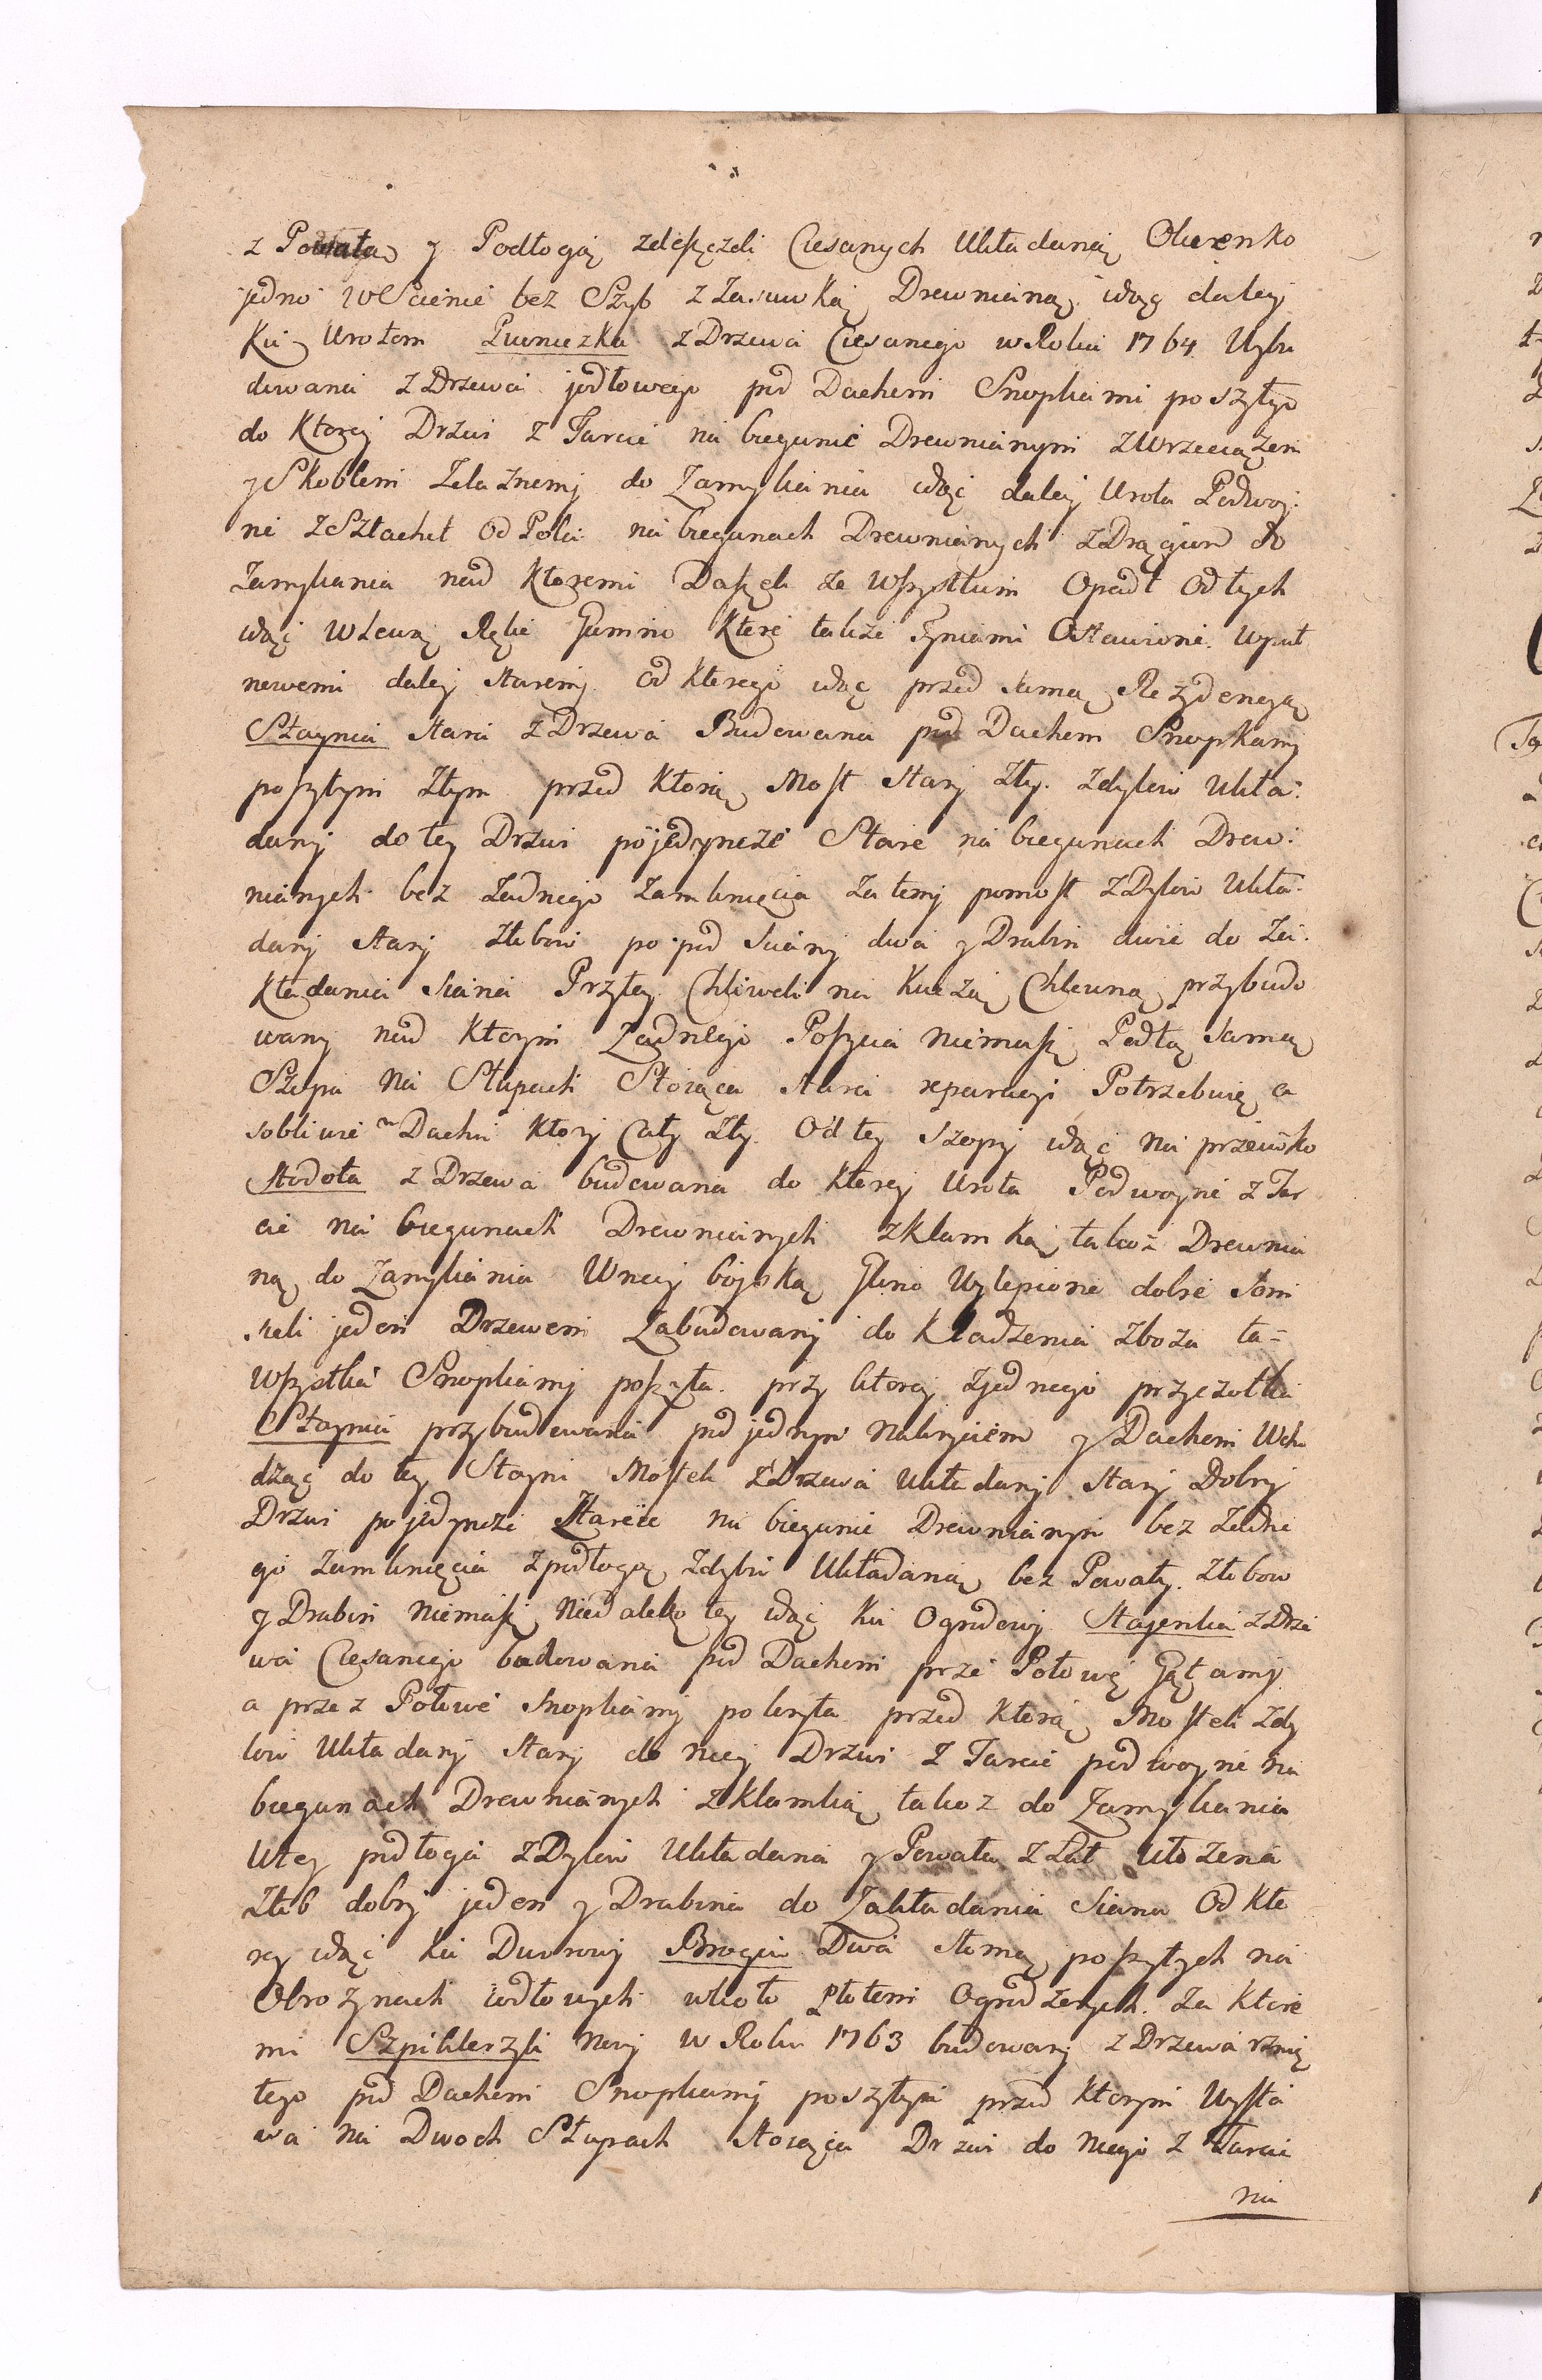 z Powałą y Podłogą zdeszczek Ciesanych Układaną Okienko
jedno w Scienie bez Szyb z Zasuwką Drewnianą idąc daley
Ku Wrotom Piwniczka z Drzewa Ciesanego w Roku 1764 Wybu
dowana z Drzewa jodłowego pod Dachem Snopkami poszytyo
do Ktorej Drzwi z Tarcic na biegunie Drewnianym z Wrzeciązem
y Skoblem Zelaznemj do Zamykania idąc daley Wrota Podwoj:
ne z Sztachet Od Pola na biegunach Drewnianych z Drągiem do
Zamykania nad Ktoremi Daszek ze Wszystkim Opadł Od tych
idąc w Lewą Rękę Gumno Ktore także Zyniami Ostawione Wpuł
nowemi daley staremj Od Ktorego idąc przed samą Rezydencyą
Staynia stara z Drzewa Budowana pod Dachem Snopkamj
poszytym Złym przed Ktorą Most Starj Zły. z dylow Ukła:
danj do tey Drzwi pojedyncze Stare na biegunach Drew:
nianych bez Zadnego Zamknięcia Za temj pomost z Dylow Ukła:
danj starj Złobow po pod scianj dwa y Drabin dwie do Za:
Kładania siana Przytey Chliwek na Kuczą Chlewną przybudo
wany nad Ktorym Zadnego Poszycia niemasz Podłą samą
Szopa na Słupach Stoiąca stara reparacyi Potrzebuię o
sobliwie w Dachu Ktorj Cały Zły. Od tey szopy idąc na przeciwko
Stodoła z Drzewa budowana do Ktorey Wrota Podwoyne z Tar
cic na biegunach Drewnianych z Klamką takoż Drewnia
ną do Zamykania Wniey boisko Gliną Wylepione dobre som
siek jeden Drzewem Zabudowanj do Kładzenia zboza ta
Wszystka Snopkamj poszyta. przy ktorey zjednego przyczołka
Staynia przybudowana pod jednym nakryciem y Dachem Wcho
dząc do tey Stayni Mostek z Drzewa Układanj Starj Dobrj
Drzwi pojedyncze Stare na biegunie Drewnianym bez Zadne
go Zamknięcia z podłogą z dyli Układaną bez Powały. Złobow
y Drabin niemasz Niedaleko tey idąc Ku Ogrodowj Stajenka z Drze
wa Ciesanego budowana pod Dachem prze Połowę Gątamj
a przez Połowę Snopkamj pokryta przed Ktorą Mostek z dy
low Układanj Starj do niey Drzwi z Tarcic podwoyne na
biegunach Drewnianych z Klamką takoz do Zamykania
Wtey podłoga z Dylow Układana y Powała z Łat Ułozena
Złob dobrj jeden y Drabina do Zakładania Siana Od Kto
rey idąc ku Dworowj Brogow Dwa słomą poszytych na
Obroznach jodłowych wkoło płotem Ogrodzonych. Za Ktore
mi Szpiklerzyk Nowj w Roku 1763 budowanj z Drzewa rznię
tego pod Dachem Snopkamj poszytym przed Ktorym Wysta
wa na Dwoch Słupach stoiąca Drzwi do niego z Tarcic
na